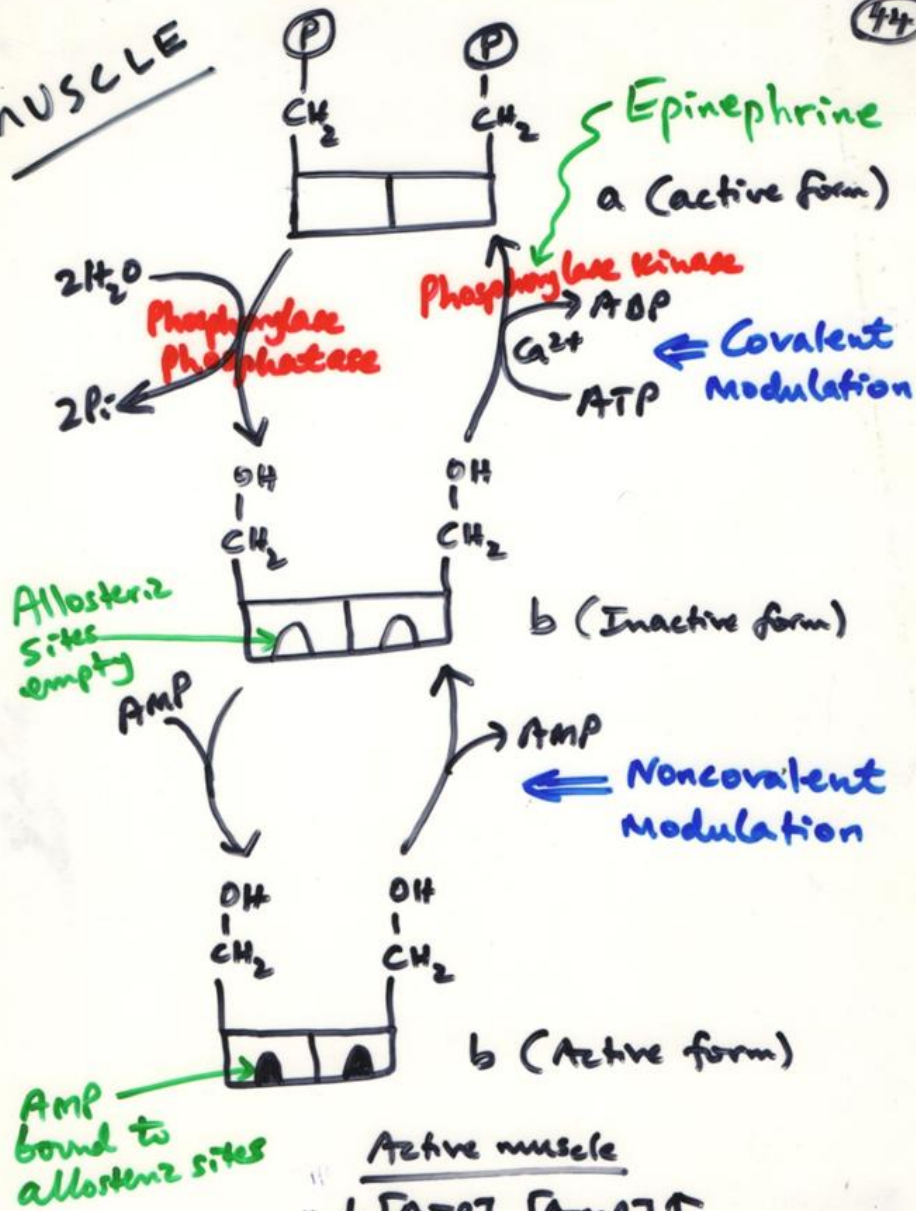 44
MUSCLE
P
P
CH2
CH2
Epinephrine
a (active form)
2H2O
Phosphorylase
Phosphatase
2Pi
Phosphorylase Kinase
ADP
Ca2+
ATP
Covalent
Modulation
OH
OH
CH2
CH2
Allosteric
sites
empty
b (Inactive form)
AMP
AMP
Noncovalent
Modulation
OH
OH
CH2
CH2
b (Active form)
AMP
bound to
allosteric sites
Active muscle